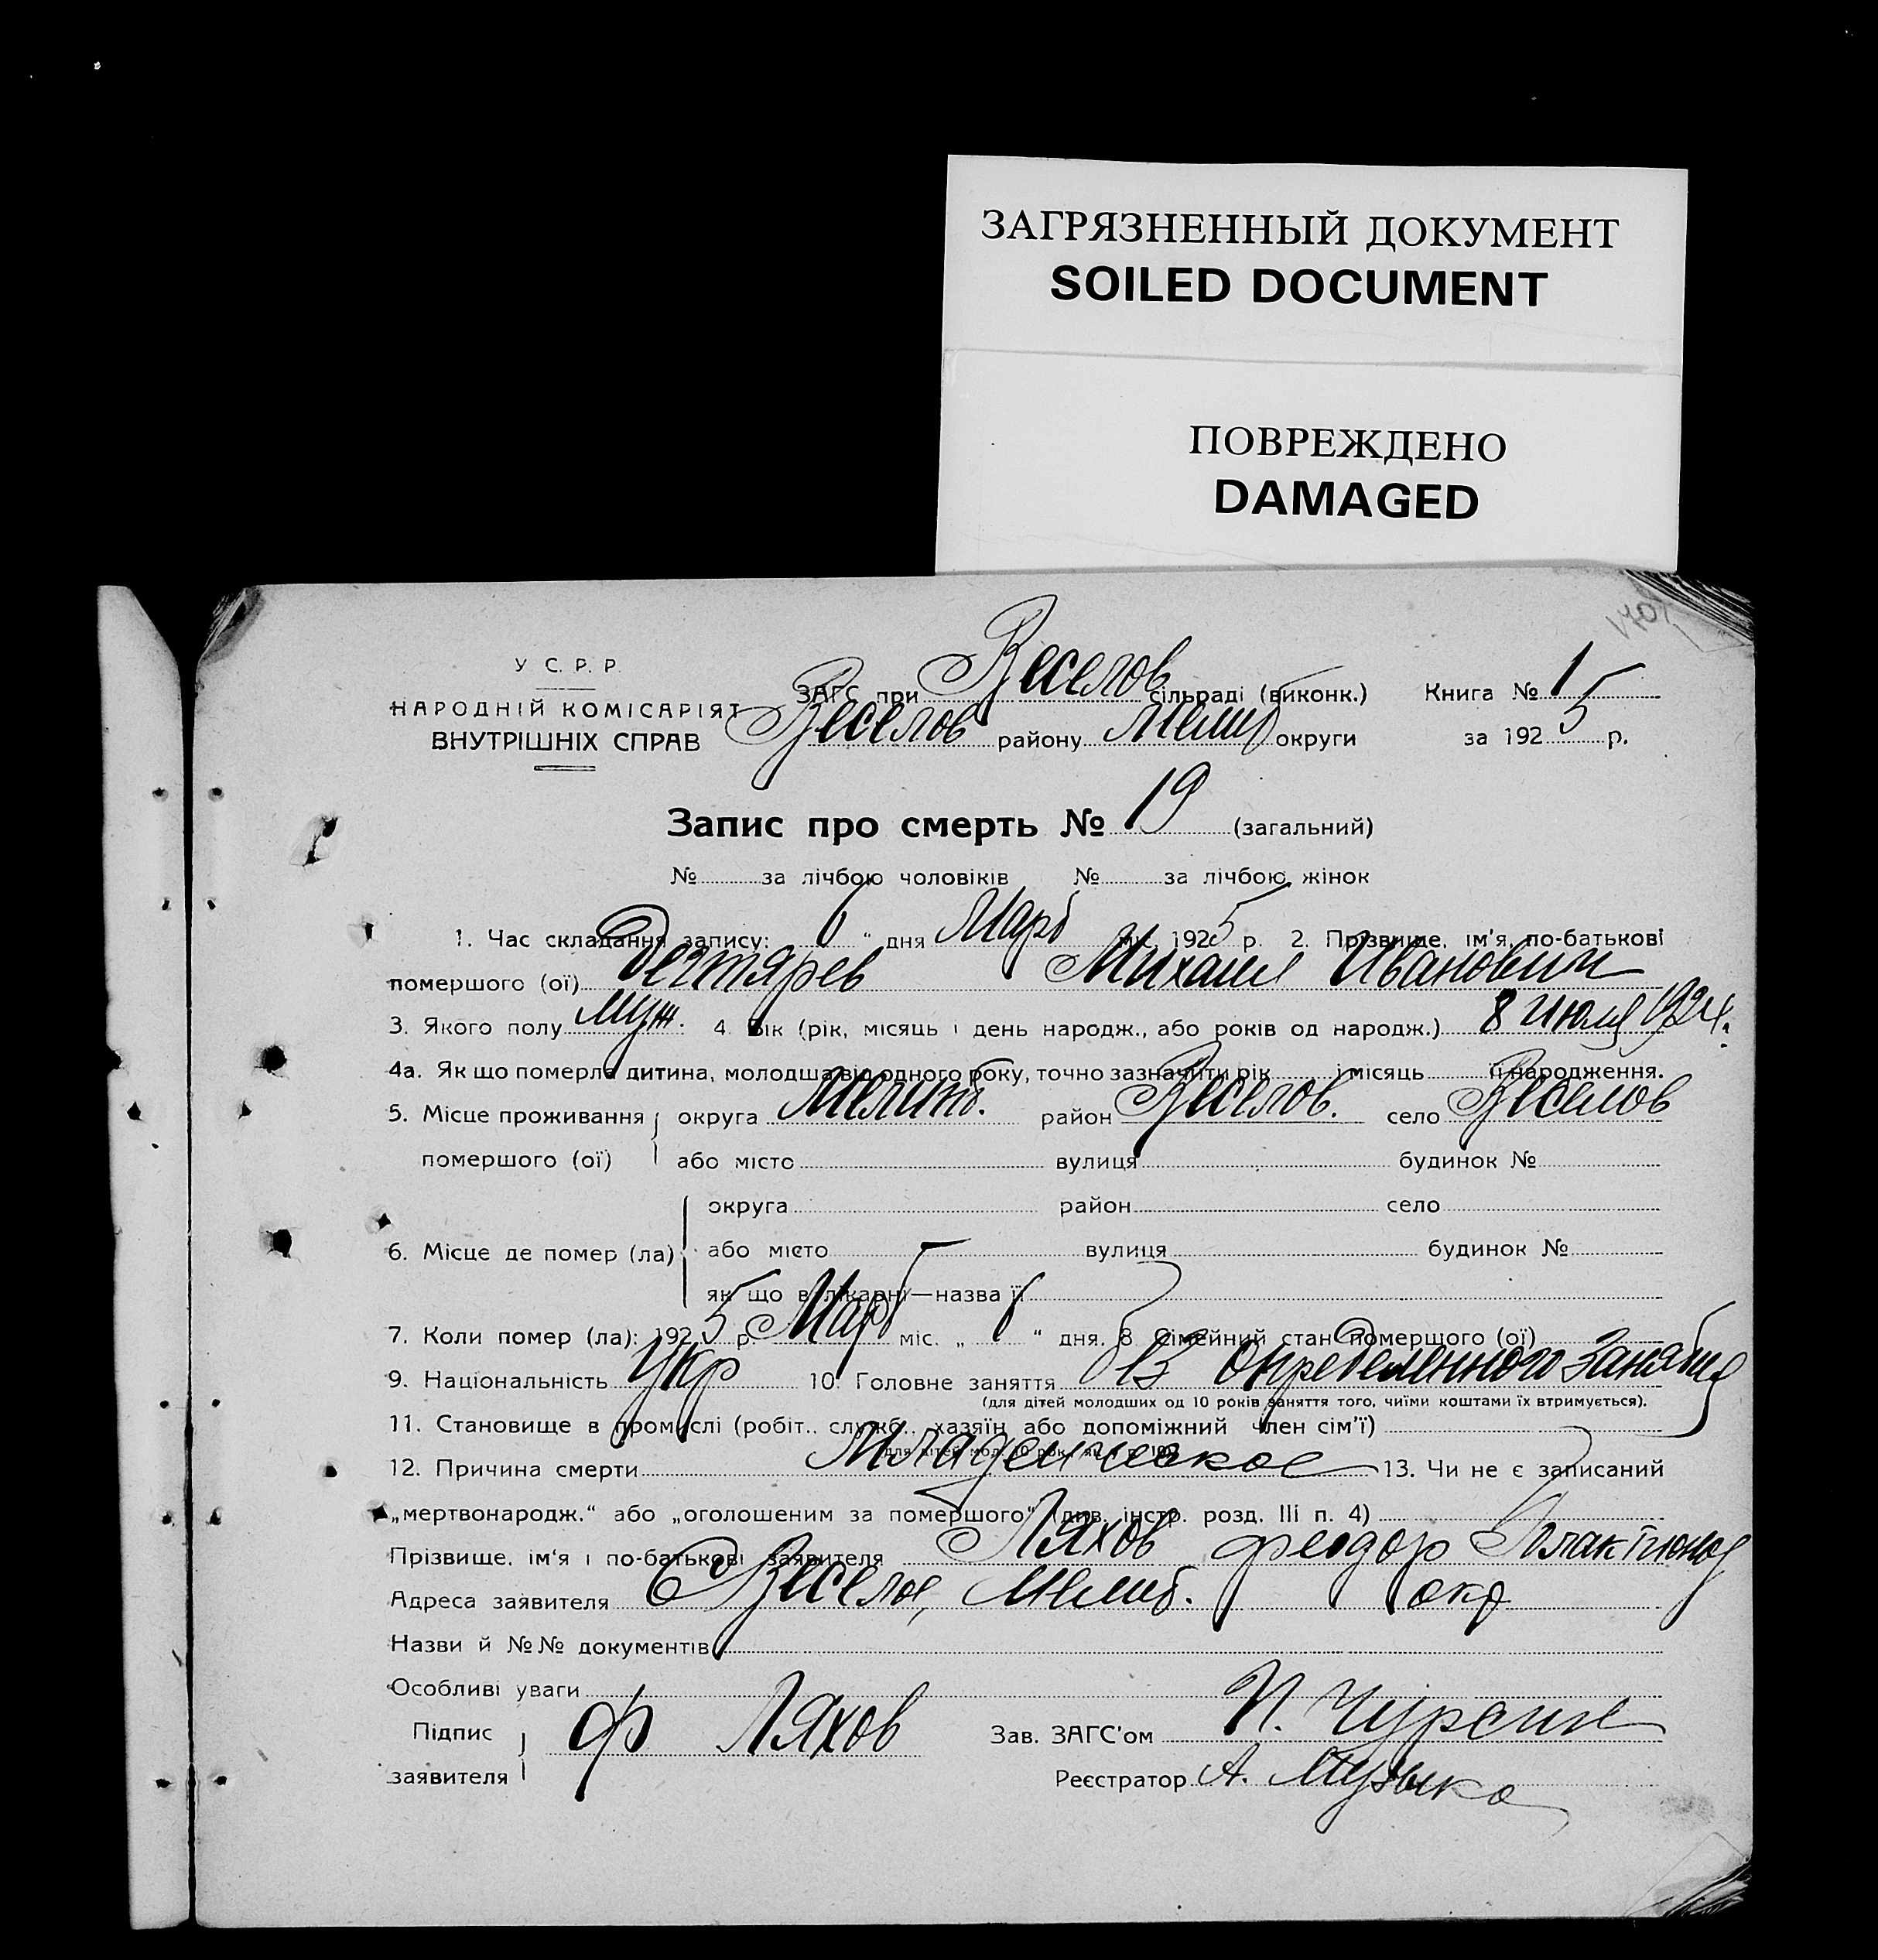 ЗАГРЯЗНЕННЫЙ ДОКУМЕНТ
SOILED DOCUMENT
ПОВРЕЖДЕНО
DAMAGED
У. С. Р. Р.
НАРОДНІЙ КОМІСАРІЯТ
ВНУТРІШНІХ СПРАВ
ЗАГС при Веселов сільраді (виконк.) Книга № 1
Веселов району Мелит округи за 1925 р.
Запис про смерть № 19 (загальний)
№ за лічбою чоловіків № за лічбою жінок
1. Час складання запису: 6 " дня Март міс. 1925 р. 2. Прізвище, ім'я, по-батькові
помершого (ої) Дегтярев Михаил Иванович
3. Якого полу муж. 4. Вік (рік, місяць і день народж., або років од народж.) 8 Июля 1924.
4а. Як що померла дитина, молодша від одного року, точно зазначити рік і місяць її народження.
5. Місце проживання округа Мелит. район Веселов. село Веселов
помершого (ої) або місто вулиця будинок №
округа район село
6. Місце де помер (ла) або місто вулиця будинок №
як що в лікарні—назва її
7. Коли помер (ла): 1925 р. Март міс. „ 6 " дня. 8. Сімейний стан помершого (ої)
9. Національність Укр 10. Головне заняття без определенного занятия
(для дітей молодших од 10 років заняття того, чиїми коштами їх втримується).
11. Становище в промислі (робіт., служб., хазяїн або допоміжний член сім'ї)
12. Причина смерти Младенческое 13. Чи не є записаний
„мертвонародж." або „оголошеним за помершого" (див. інстр. розд. III п. 4)
Прізвище, ім'я і по-батькові заявителя Ляхов Феодор
Адреса заявителя С Веселое, Мелит. окр
Назви й №№ документів
Особливі уваги
Підпис заявителя Ф Ляхов Зав. ЗАГС'ом И. Чурсин
Реєстратор А. Музыка